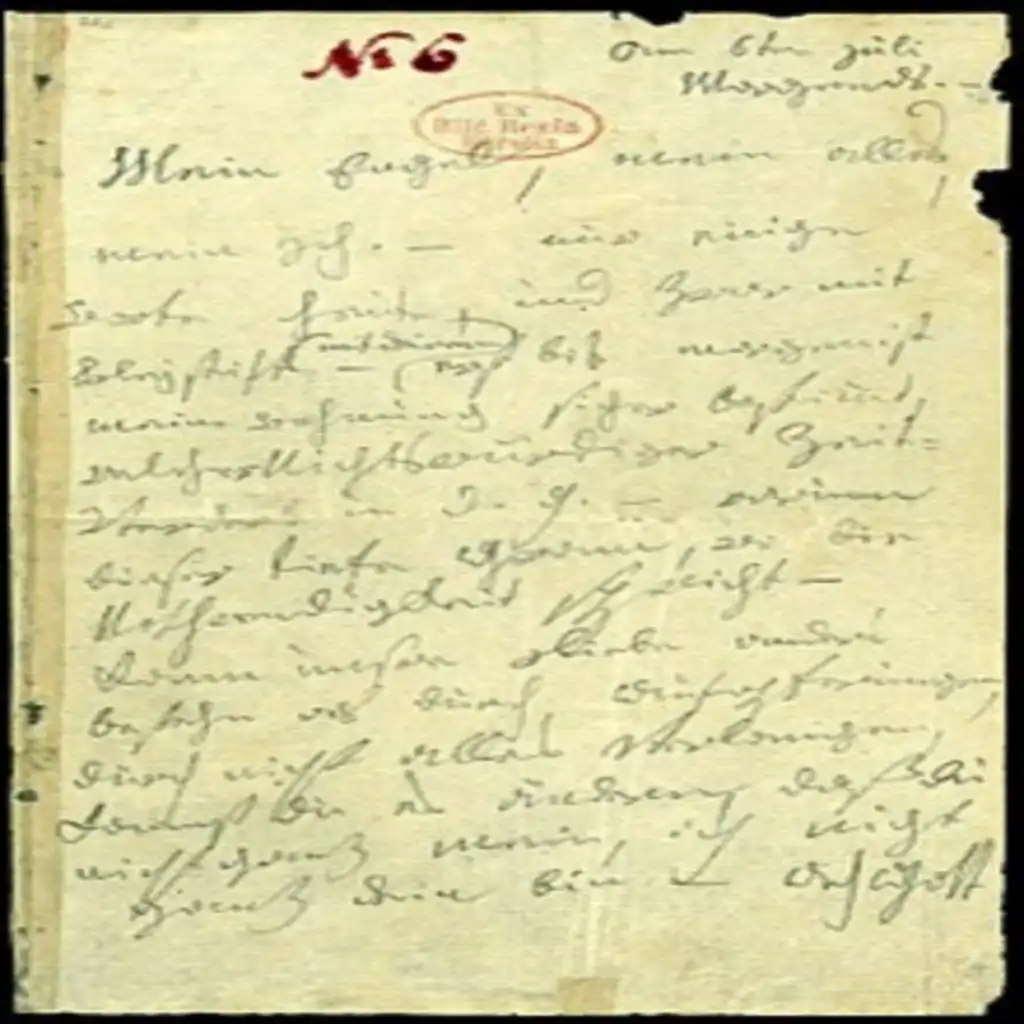 № 6
am 6ten juli
Morgends. –
Ex
Bibl. Regia
Berolin.
Mein Engel, mein alles,
mein Ich. – nur einige
worte heute, und zwar mit
Bleystift – (mit deinem) erst bis morgen ist
meine wohnung sicher bestimmt,
welcher Nichtswürdiger Zeit-
Verderb in d. g. – warum
dieser tiefe Gram, wo die
Nothwendigkeit spricht –
Kann unsre Liebe anders
bestehn als durch Aufopferungen,
durch nicht alles verlangen,
kannst du es ändern, daß du
nicht ganz mein, ich nicht
ganz dein bin – Ach Gott